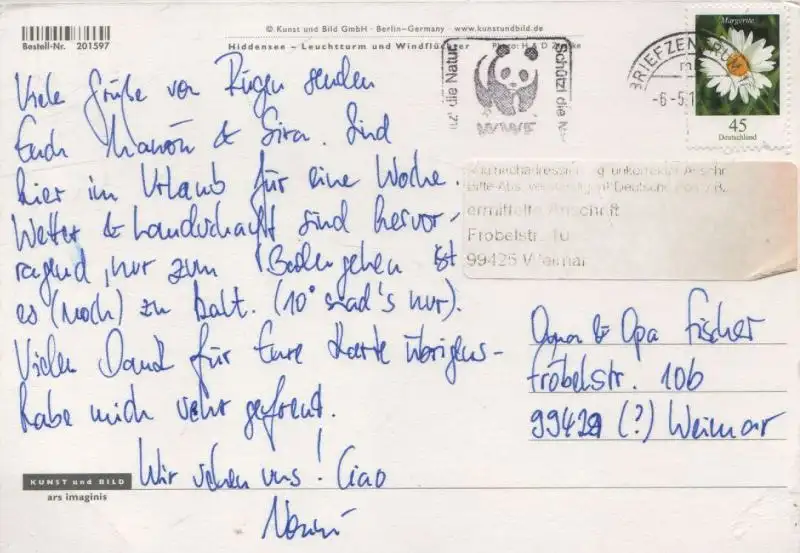 © Kunst und Bild GmbH · Berlin–Germany www.kunstundbild.de
Bestell-Nr. 201597
Hiddensee – Leuchtturm und Windflüchter Photo: H & D
Margerite
45
Deutschland
BRIEFZENTRUM
-6-5.1
Schützt die Natur
WWF
Viele Grüße von Rügen senden
Euch & Sira. Sind
hier im Urlaub für eine Woche.
Wetter & Landschaft sind hervor-
ragend, nur zum Baden gehen ist
es (noch) zu kalt. (10° sind's nur).
Vielen Dank für Eure Karte übrigens-
habe mich sehr gefreut.
Wir sehen uns! Ciao
ermittelte Anschrift
Fröbelstr. 10
99425 Weimar
Oma & Opa Fischer
Fröbelstr. 10b
(?) Weimar
KUNST und BILD
ars imaginis